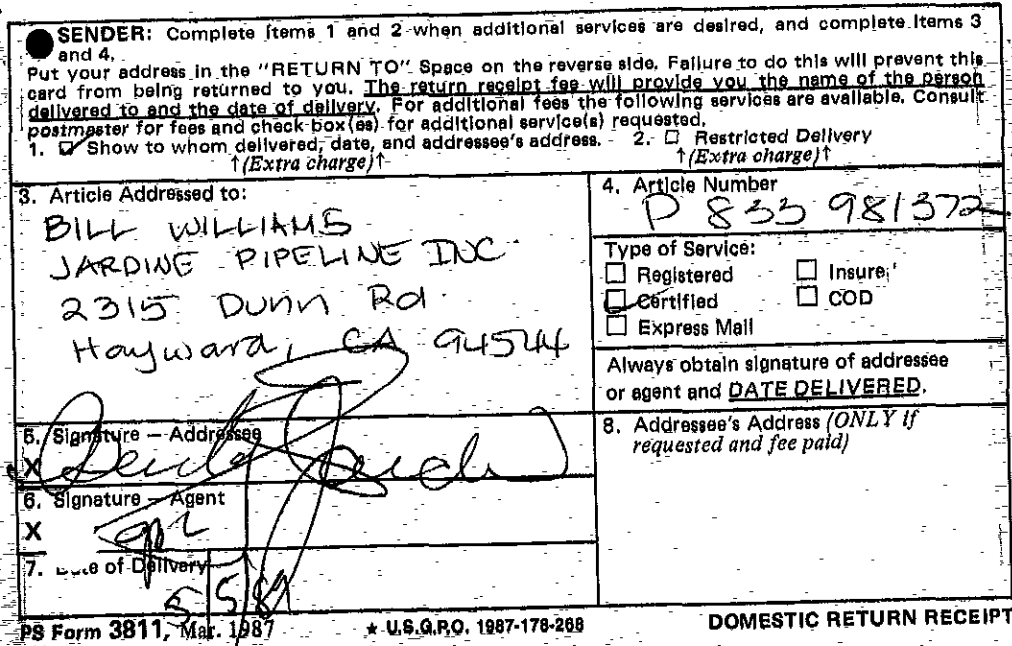 SENDER: Complete items 1 and 2 when additional services are desired, and complete items 3
and 4.
Put your address in the "RETURN TO" Space on the reverse side. Failure to do this will prevent this
card from being returned to you. The return receipt fee will provide you the name of the person
delivered to and the date of delivery. For additional fees the following services are available. Consult
postmaster for fees and check box(es) for additional service(s) requested.
1. ☑ Show to whom delivered, date, and addressee's address. 2. ☐ Restricted Delivery
↑(Extra charge)↑ ↑(Extra charge)↑
3. Article Addressed to:
BILL WILLIAMS
JARDINE PIPELINE INC
2315 DUNN Rd.
Hayward, CA 94544
4. Article Number
P 833 981372
Type of Service:
☐ Registered ☐ Insure
☑ Certified ☐ COD
☐ Express Mail
Always obtain signature of addressee
or agent and DATE DELIVERED.
5. Signature — Addressee
X
6. Signature — Agent
X
7. Date of Delivery
5/5/89
8. Addressee's Address (ONLY if
requested and fee paid)
PS Form 3811, Mar. 1987 ★ U.S.G.P.O. 1987-178-268 DOMESTIC RETURN RECEIPT